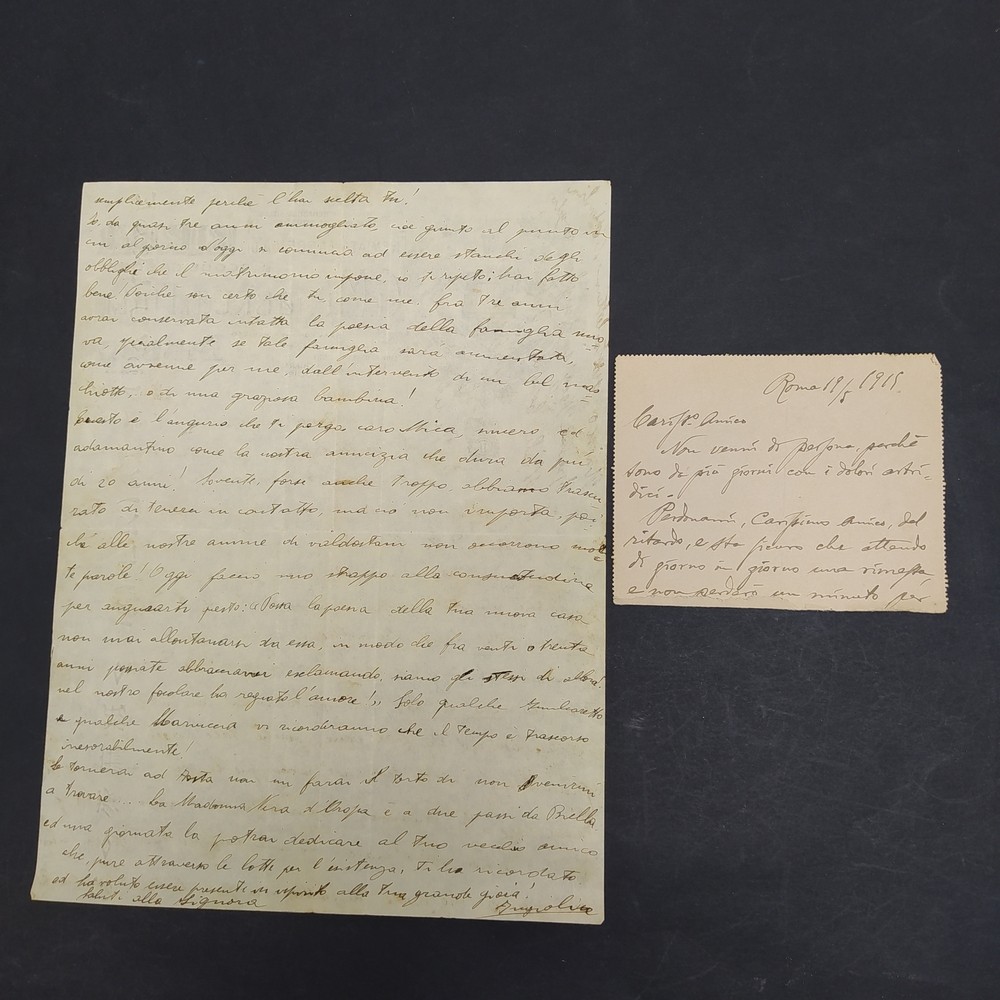 semplicemente perché l'hai scelta tu!
Io, da quasi tre anni ammogliato, cioè giunto al punto in
cui al giorno d'oggi si comincia ad essere stanchi degli
obblighi che il matrimonio impone, io ti ripeto: hai fatto
bene Poiché son certo che tu come me, fra tre anni
avrai conservata intatta la poesia della famiglia nuo-
va specialmente se tale famiglia sarà aumentata,
come avvenne per me, dall'intervento di un bel mas-
chiotto, o di una graziosa bambina!
Questo è l'augurio che ti porge caro Mica, sincero ed
adamantino come la nostra amicizia che dura da più
di 20 anni! Sovente, forse anche troppo, abbiamo trascu-
rato di tenerci in contatto, ma ciò non importa, poi
ché alle nostre anime di valdostani non occorrono mol-
te parole! Oggi faccio uno strappo alla consuetudine
per augurarti questo: "Possa la poesia della tua nuova casa
non mai allontanarsi da essa, in modo che fra venti o trenta
anni possiate abbracciarvi esclamando, siamo gli stessi di allora!
nel nostro focolare ha regnato l'amore!" Solo qualche
e qualche Mariuccia vi ricorderanno che il tempo è trascorso
inesorabilmente!
Se tornerai ad Aosta non mi farai il torto di non venirmi
a trovare... La Madonna Nera d'Oropa è a due passi da Biella
ed una giornata la potrai dedicare al tuo vecchio amico
che, pure attraverso le lotte per l'esistenza, ti ha ricordato
ed ha voluto essere presente in ispirito alla tua grande gioia!
Saluti alla Signora
Roma 19/5 1915
Cariss.º Amico
Non venni di persona, perché
sono da più giorni con i dolori artri-
dici.
Perdonami, Carissimo Amico, del
ritardo, e sta sicuro che attendo
di giorno in giorno una rimessa,
e non perderò un minuto per